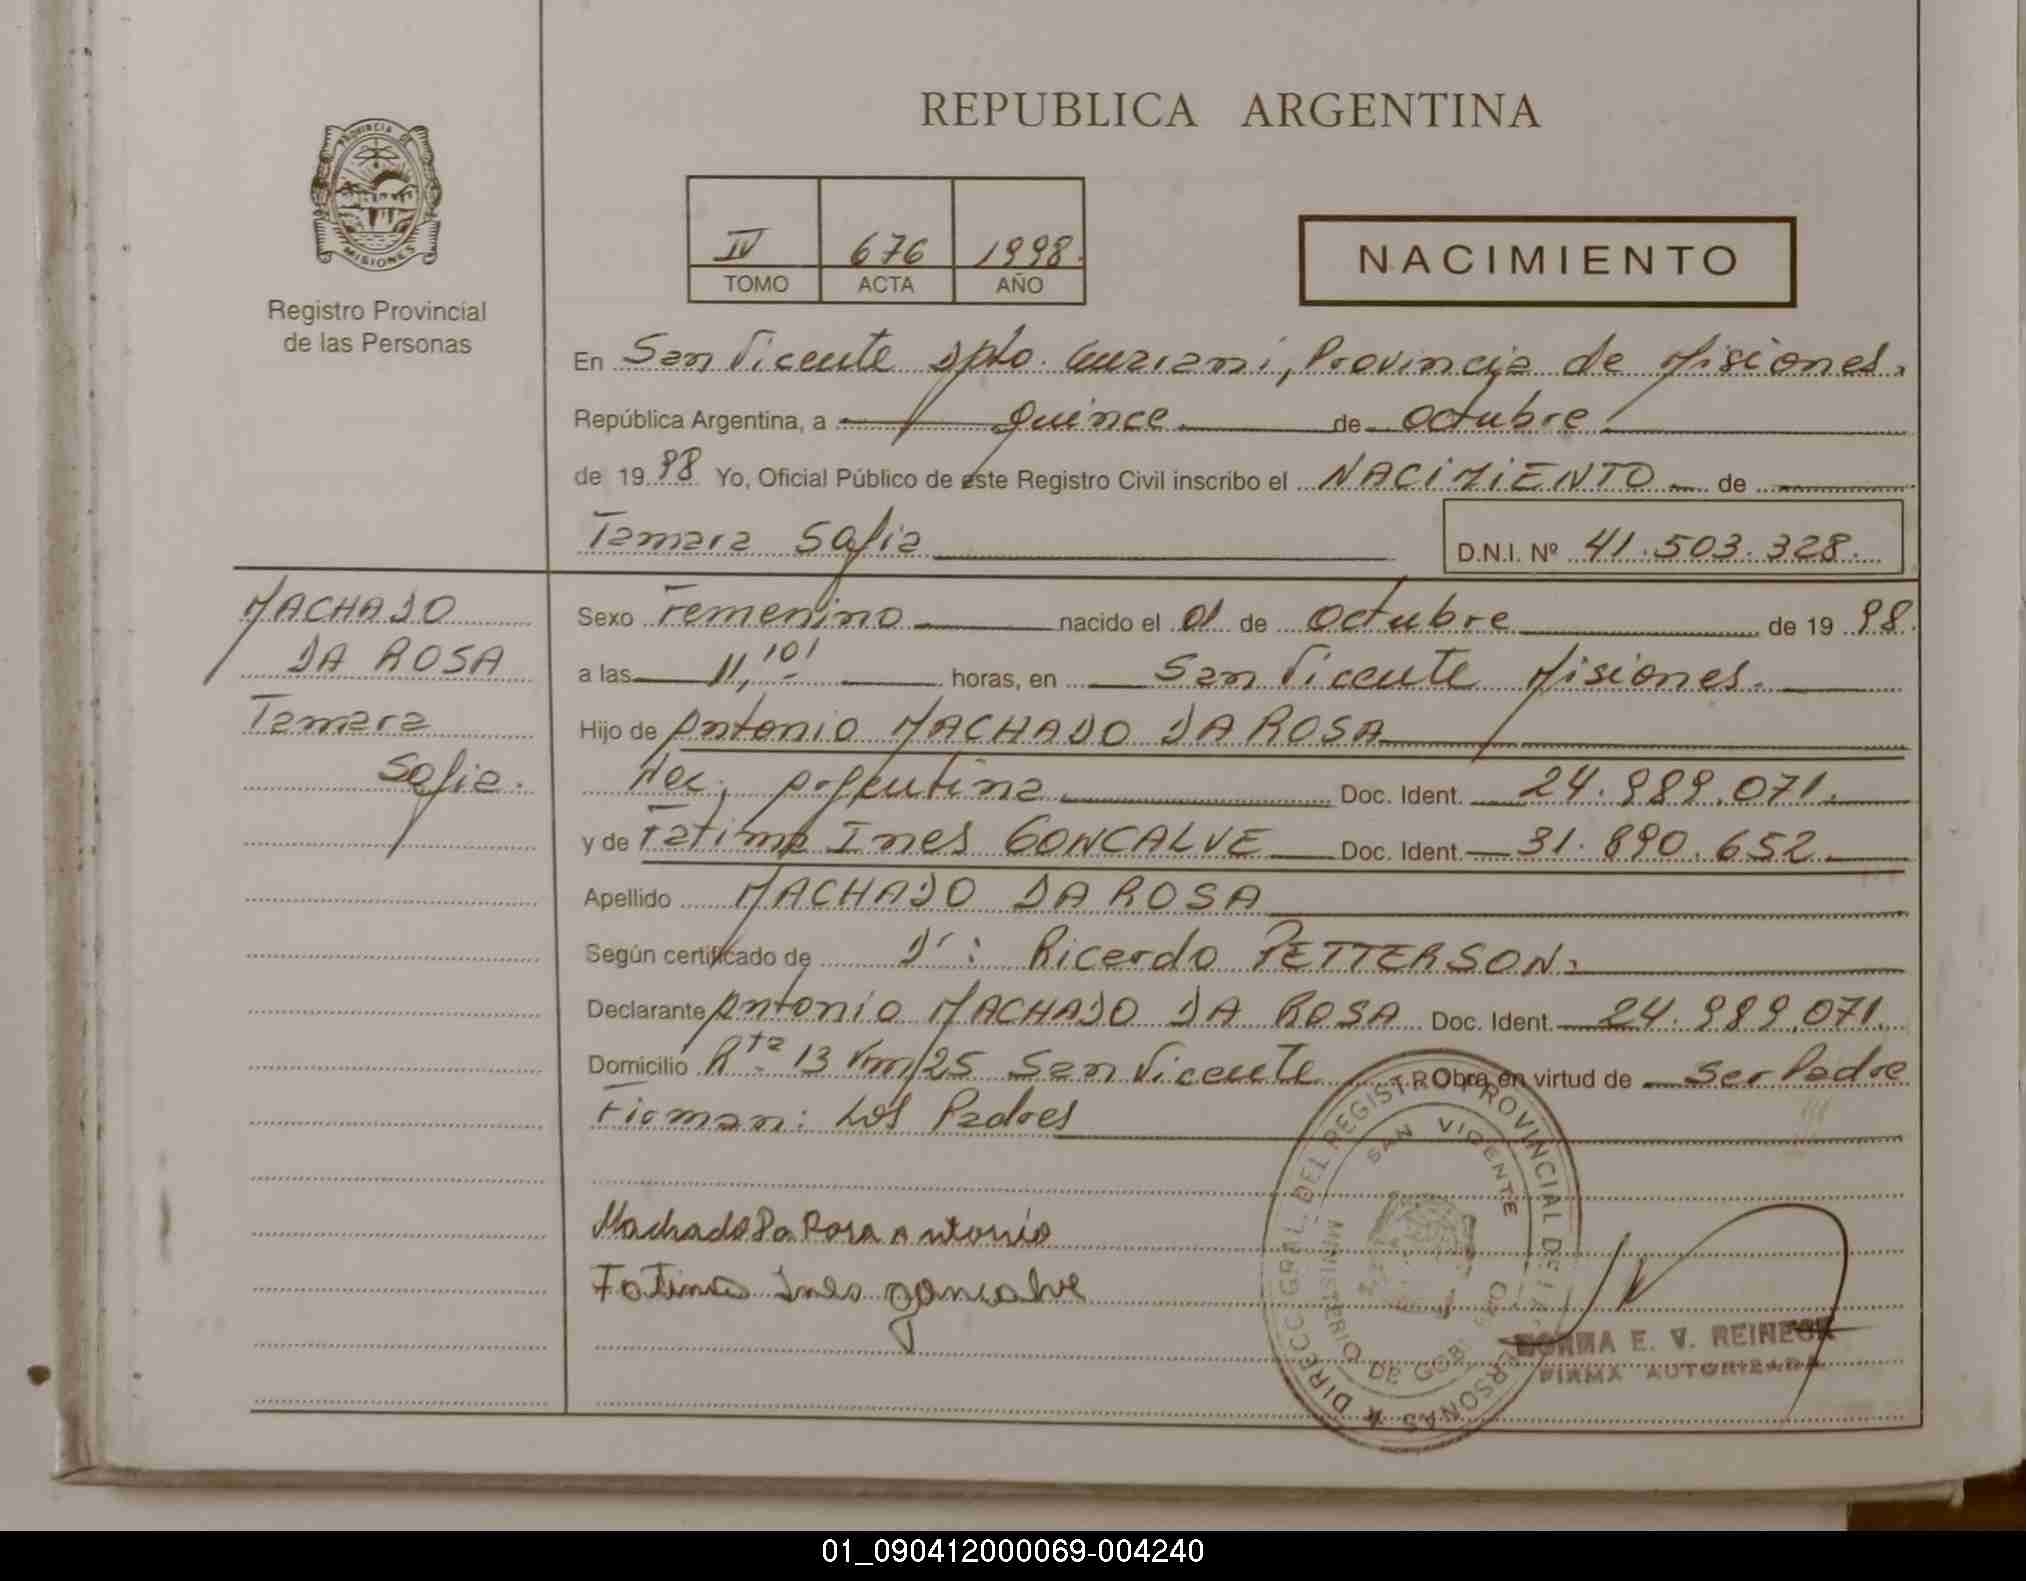 REPUBLICA ARGENTINA
PROVINCIA DE
MISIONES
Registro Provincial
de las Personas
IV 676 1998.
TOMO ACTA AÑO
NACIMIENTO
En San Vicente Dpto. Guarani, Provincia de Misiones.
República Argentina, a Quince de Octubre
de 1998 Yo, Oficial Público de este Registro Civil inscribo el NACIMIENTO de
Tamara Sofia
D.N.I. Nº 41.503.328.
MACHADO
DA ROSA
Tamara
Sofia.
Sexo Femenino nacido el 01 de Octubre de 1998.
a las 11,10' horas, en San Vicente Misiones.
Hijo de Antonio MACHADO DA ROSA
Nac. Argentina Doc. Ident. 24.989.071.
y de Fatima Ines GONCALVE Doc. Ident. 31.890.652
Apellido MACHADO DA ROSA
Según certificado de Dr: Ricardo PETTERSON.
Declarante Antonio MACHADO DA ROSA Doc. Ident. 24.989.071.
Domicilio Rta 13 Km 25 San Vicente Obra en virtud de Ser Padre
Firman: Los Padres
Machado Da Rosa Antonio
Fatima Ines goncalve
DIRECC. GRAL. DEL REGISTRO PROVINCIAL DE LAS PERSONAS
SAN VICENTE
MINISTERIO DE GOB.
NORMA E. V. REINECK
FIRMA AUTORIZADA
01_090412000069-004240